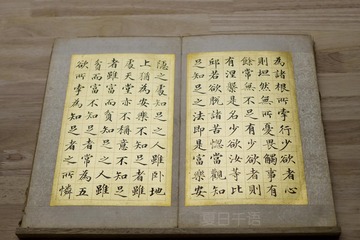 為諸根所牽行少欲者心
則坦然無所憂畏觸事有
餘常無不足有少欲者則
有涅槃是名少欲汝等比
邱若欲脫諸苦惱當觀知
足知足之法即是富樂安
隱之處知足之人雖卧地
上猶為安樂不知足者雖
處天堂亦不稱意不知足
者雖富而貧知足之人雖
貧而富不知足者常為五
欲所牽為知足者之所憐
夏日千语